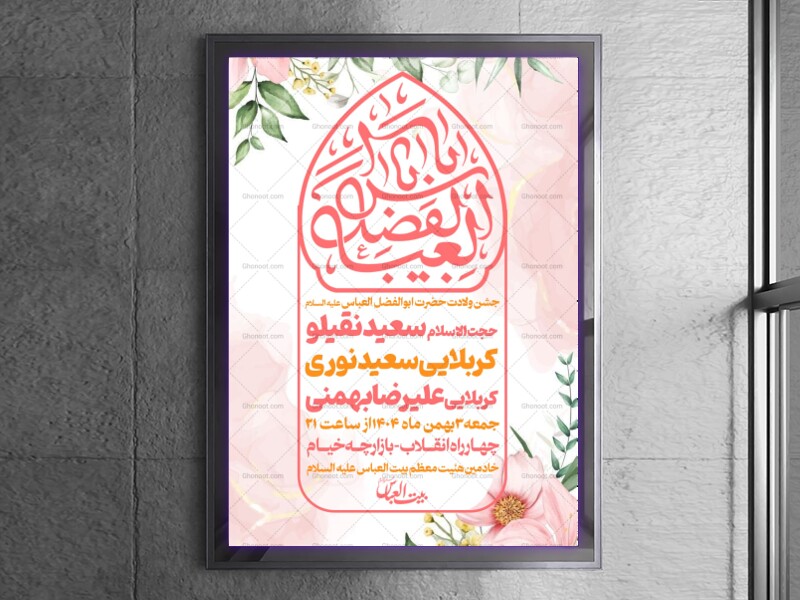 یا باب
العباس
جشن ولادت حضرت ابوالفضل العباس علیه السلام
حجت الاسلام سعید نقیلو
کربلایی سعید نوری
کربلایی علیرضا بهمنی
جمعه ۳ بهمن ماه ۱۴۰۴ از ساعت ۲۱
چهارراه انقلاب - بازارچه خیام
خادمین هئیت معظم بیت العباس علیه السلام
بیت العباس
Ghonoot.com